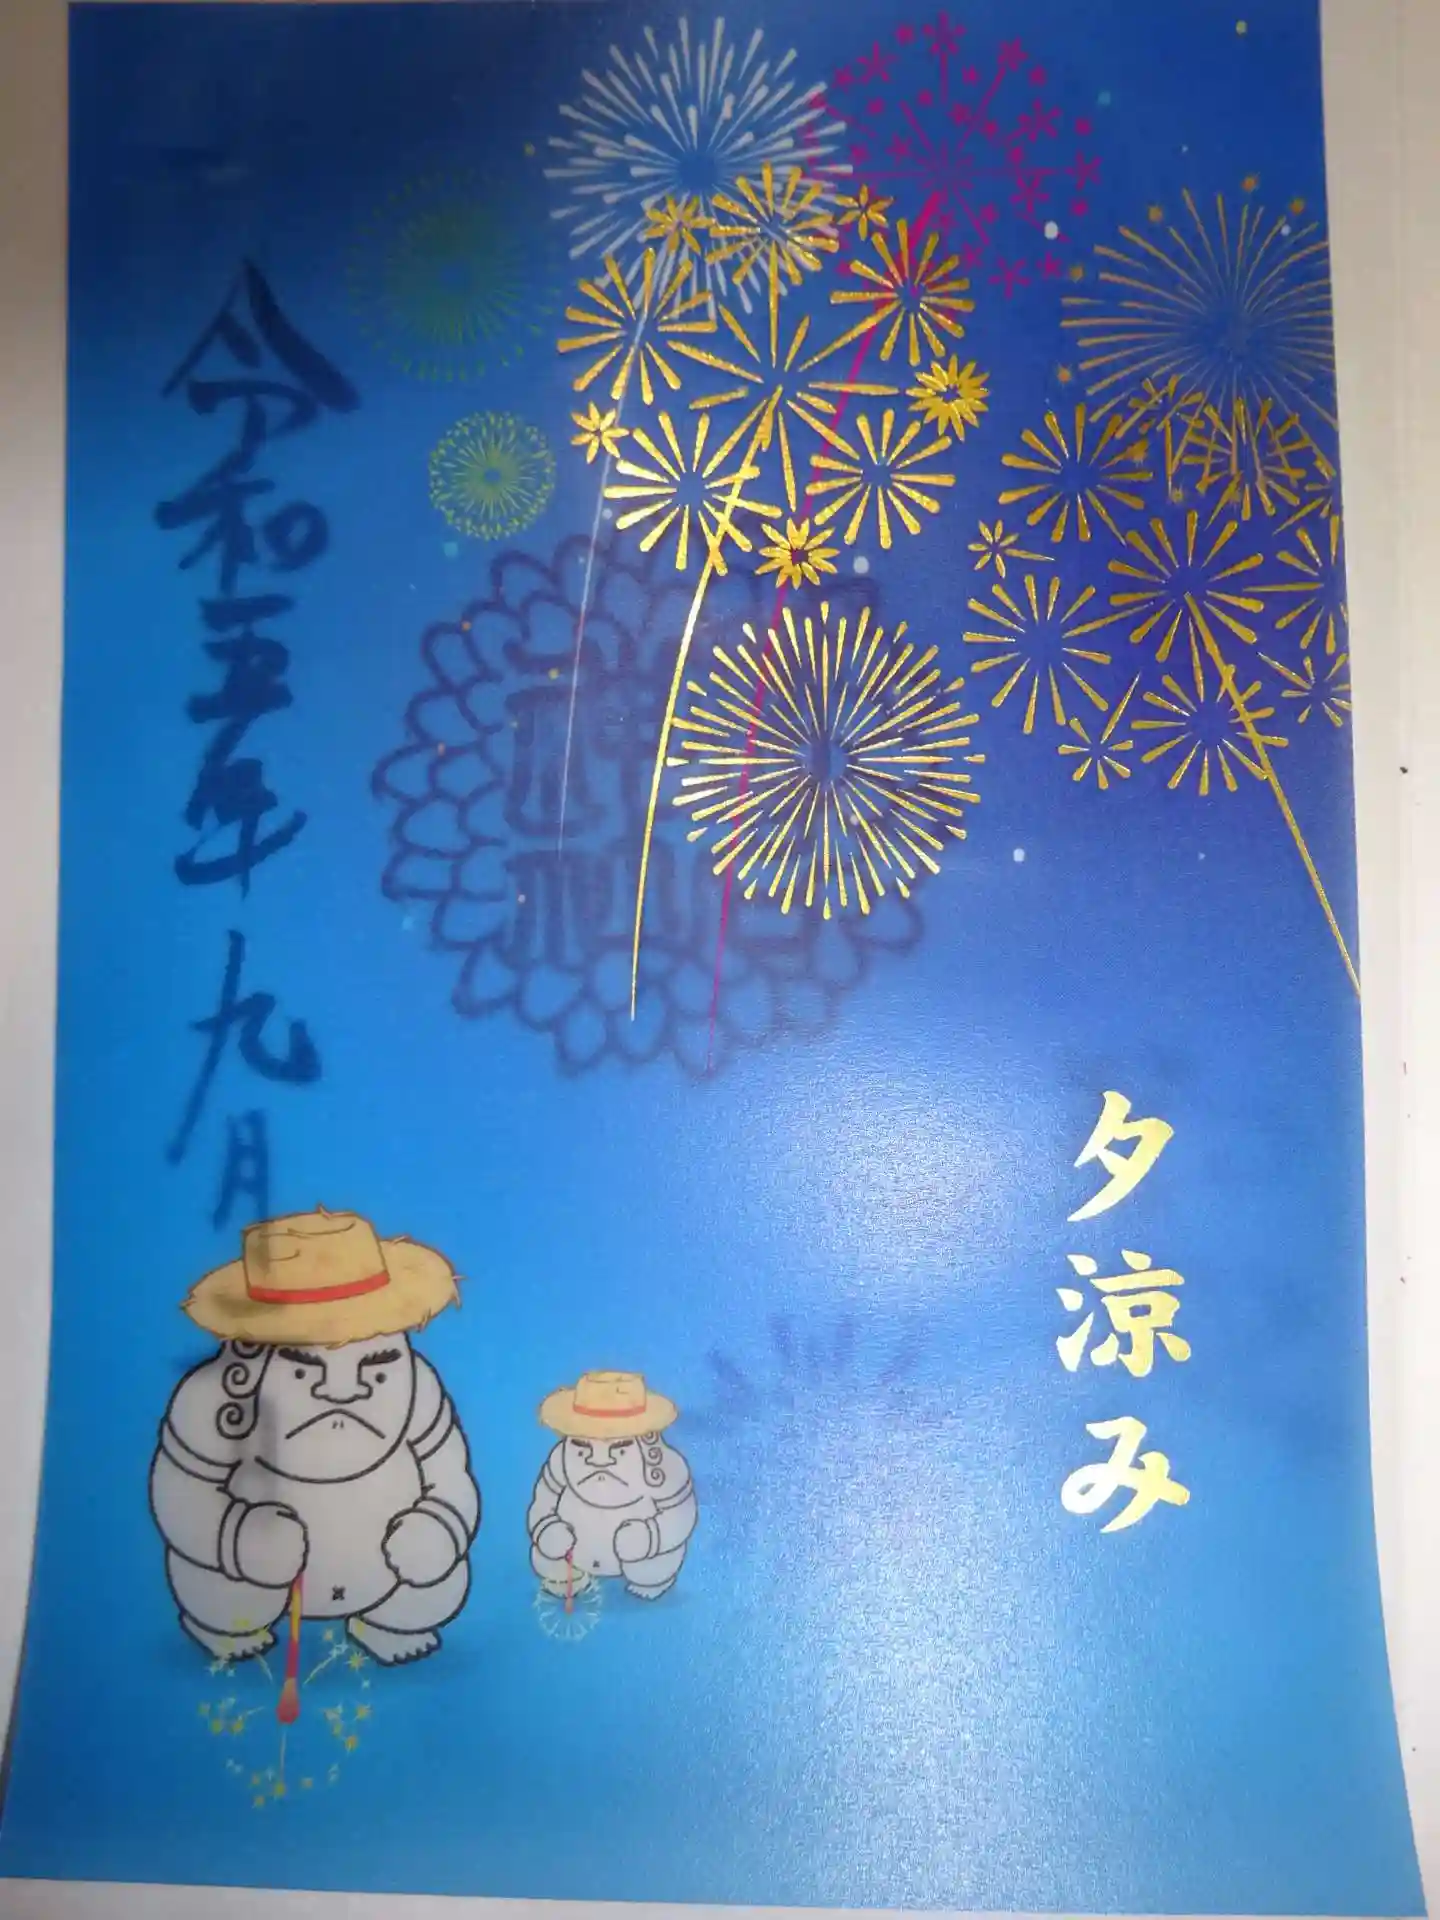 夕涼み
令和五年九月